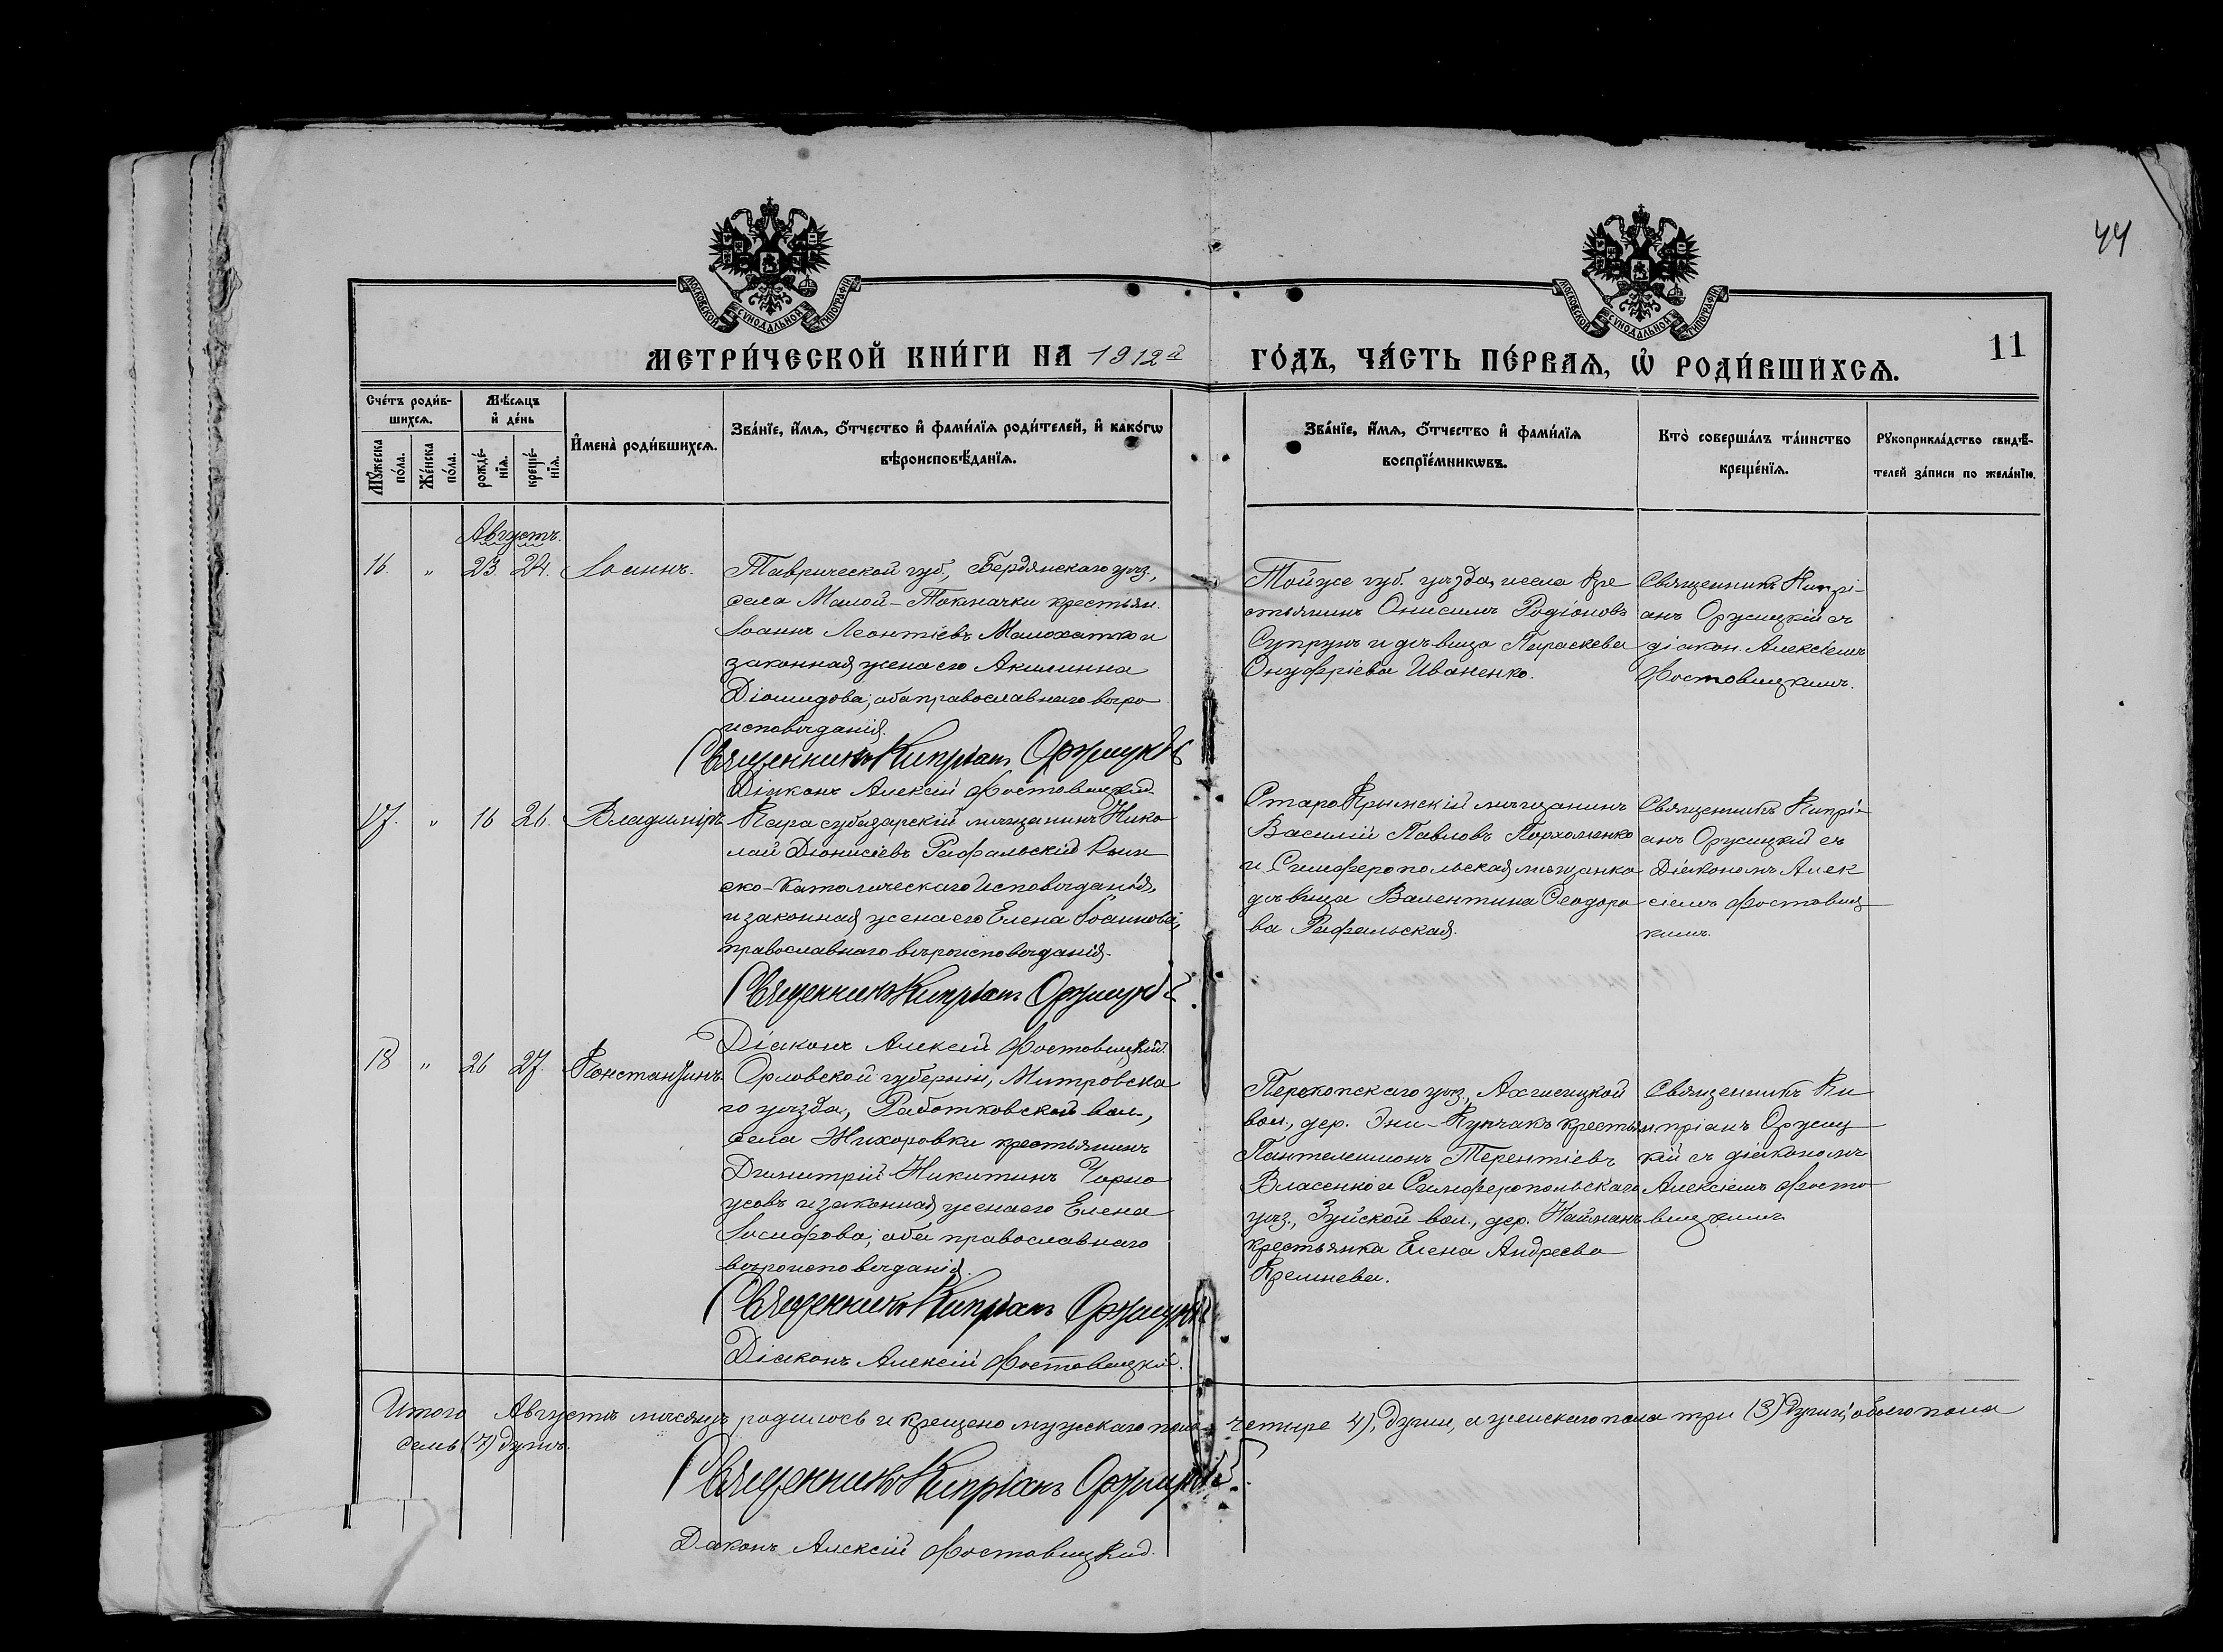 44
МОСКОВСКОЙ СУНОДАЛЬНОЙ ТИПОГРАФІИ
МОСКОВСКОЙ СУНОДАЛЬНОЙ ТИПОГРАФІИ
МЕТРИ́ЧЕСКОЙ КНИ́ГИ НА 1912й ГО́ДЪ, ЧА́СТЬ ПЕ́РВАѦ, Ѡ҆ РОДИ́ВШИХСѦ.
11
Сче́тъ роди́в-
шихсѧ.
Мꙋ́жеска по́ла.
Же́нска по́ла.
Мѣ́сѧцъ
и҆ де́нь
рожде́-
нїѧ.
креще́-
нїѧ.
И҆мена̀ роди́вшихсѧ.
Зва́нїе, и҆́мѧ, ѻ҆́тчество и҆ фами́лїѧ роди́телей, и҆ како́гѡ
вѣроисповѣ́данїѧ.
Зва́нїе, и҆́мѧ, ѻ҆́тчество и҆ фами́лїѧ
воспрїе́мникѡвъ.
Кто̀ соверша́лъ та́инство
креще́нїѧ.
Рꙋкоприкла́дство свидѣ́-
телей за́писи по жела́нїю.
Августъ.
16. " 23. 24. Іоаннъ.
Таврической губ., Бердянскаго уѣз.,
села Малой-Токмачки крестьян.
Іоаннъ Леонтіевъ Малохатко и
законная жена его Акилинна
Діомидова; оба православнаго вѣро
исповѣданія.
Священникъ Кипріанъ Оржицкій
Діаконъ Алексій Фостовицкій
Той же губ. уѣзда, и села Кре
стьянинъ Онисимъ Родіоновъ
Супрунъ и дѣвица Параскева
Онуфріева Иваненко.
Священникъ Кипрі-
анъ Оржицкій съ
діакон. Алексіемъ
Фостовицкимъ.
17. " 16 26. Владиміръ
Карасубазарскій мѣщанинъ Нико
лай Діонисіевъ Рафальскій Рим
ско-Католическаго Исповѣданія,
и законная жена его Елена Іоаннова,
православнаго вѣроисповѣданія.
Священникъ Кипріанъ Оржицкій
Діаконъ Алексій Фостовицкій.
Старо Крымскій мѣщанинъ
Василій Павловъ Пархоменко
и Симферопольская мѣщанка
дѣвица Валентина Ѳеодоро
ва Рафальская.
Священникъ Кипрі
анъ Оржицкій съ
Діакономъ Алек
сіемъ Фостовиц
кимъ.
18 " 26 27. Константинъ.
Орловской губерніи, Митровска
го уѣзда, Работковской вол.,
села Жихоровки крестьянинъ
Димитрій Никитинъ Чорно
усовъ и законная жена его Елена
Іосифова; оба православнаго
вѣроисповѣданія.
Священникъ Кипріанъ Оржицкій
Діаконъ Алексій Фостовицкій.
Перекопскаго уѣз.,
вол., дер. крестьян
Пантелеимонъ Терентіевъ
Власенко и Симферопольскаго
уѣз., Зуйской вол., дер. Найманъ
крестьянка Елена Андреева
Кремнева.
Священникъ Ки
пріанъ Оржиц
кій съ діакономъ
Алексіемъ Фосто
вицкимъ
Итого Августъ мѣсяцъ родилось и крещено мужескаго пола четыре 4), души, а женскаго пола три (3) души, обоего пола
семь (7) душъ.
Священникъ Кипріанъ Оржицкій.
Діаконъ Алексій Фостовицкій.